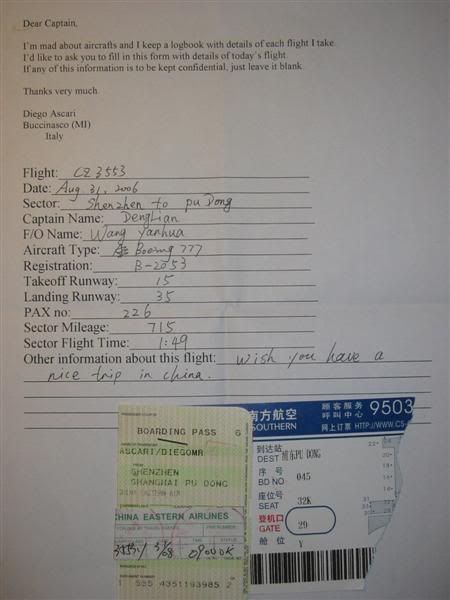 Dear Captain,
I'm mad about aircrafts and I keep a logbook with details of each flight I take.
I'd like to ask you to fill in this form with details of today's flight.
If any of this information is to be kept confidential, just leave it blank.
Thanks very much.
Diego Ascari
Buccinasco (MI)
Italy
Flight: CZ 3553
Date: Aug 31, 2006
Sector: Shenzhen to pu Dong
Captain Name: Deng Lian
F/O Name: Wang Yanhua
Aircraft Type: Boeing 777
Registration: B-2053
Takeoff Runway: 15
Landing Runway: 35
PAX no: 226
Sector Mileage: 715
Sector Flight Time: 1:49
Other information about this flight: wish you have a
nice trip in china.
BOARDING PASS 6
ASCARI/DIEGOMR
SHENZHEN
SHANGHAI PU DONG
CHINA EASTERN AIRLINES
31/08 0900 OK
555 4351193985 2
南方航空 顾客服务 9503
SOUTHERN 呼叫中心
网上订票 HTTP://WWW.CS
到达站
DEST 浦东PU DONG
序号
BD NO 045
座位号
SEAT 32K
登机口
GATE 29
舱位 Y